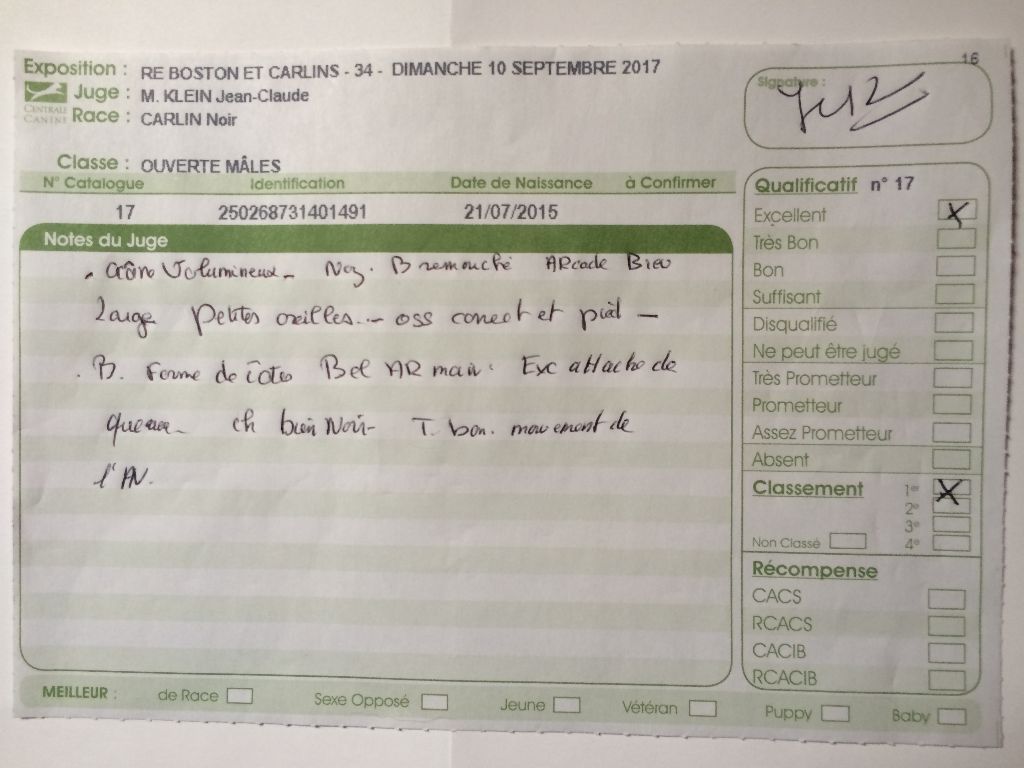 16
Exposition : RE BOSTON ET CARLINS - 34 - DIMANCHE 10 SEPTEMBRE 2017
Juge : M. KLEIN Jean-Claude
CENTRALE CANINE
Race : CARLIN Noir
Signature :
Classe : OUVERTE MÂLES
N° Catalogue Identification Date de Naissance à Confirmer
17 250268731401491 21/07/2015
Notes du Juge
Crâne Volumineux - Nez. B remouché ARcade Bien
large Petites oreilles - oss correct et pied -
B. Forme de côtes Bel AR main. Exc attache de
queue - ch bien Noir - T. bon. mouvement de
l'AV.
Qualificatif n° 17
Excellent X
Très Bon
Bon
Suffisant
Disqualifié
Ne peut être jugé
Très Prometteur
Prometteur
Assez Prometteur
Absent
Classement 1er X
2e
3e
Non Classé 4e
Récompense
CACS
RCACS
CACIB
RCACIB
MEILLEUR : de Race Sexe Opposé Jeune Vétéran Puppy Baby